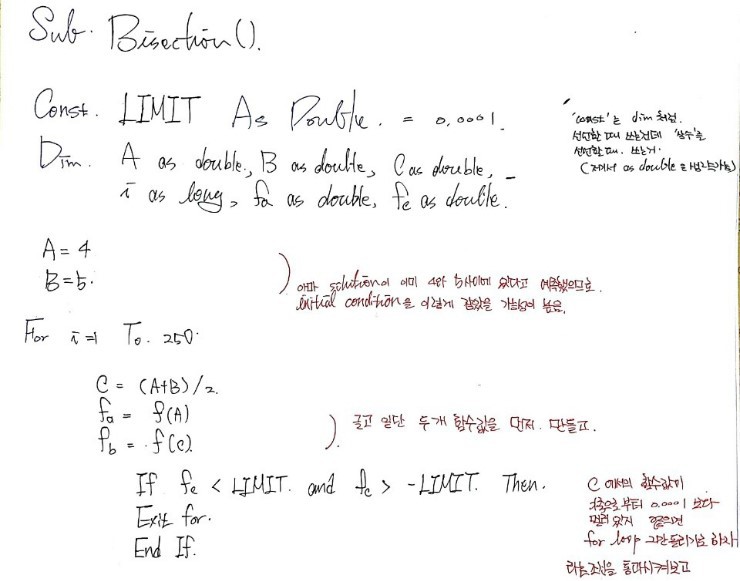 Sub. Bisection().
Const. LIMIT As Double. = 0.0001.
'const'는 dim 처럼.
선언할 때 쓰는건데 '상수'를
선언할 때. 쓰는거.
(저에서 as double 은 생략가능)
Dim. A as double, B as double, C as double, _
i as long, fa as double, fc as double.
A = 4
B = 5.
) 아마 solution이 이미 4와 5사이에 있다고 예측했으므로.
initial condition을 이렇게 잡았을 가능성이 높음.
For i=1 To. 250.
C = (A+B)/2.
fa = f(A)
fb = f(c).
). 글고 일단 두개 함수값을 먼저. 만들고.
If fc < LIMIT. and fc > -LIMIT. Then.
Exit for.
End If.
C 에서의 함수값이
으로부터 0.0001 보다
멀리 있지 않으면
for loop 그만 돌리기로 하자
라는 조건을 통과시켜보고